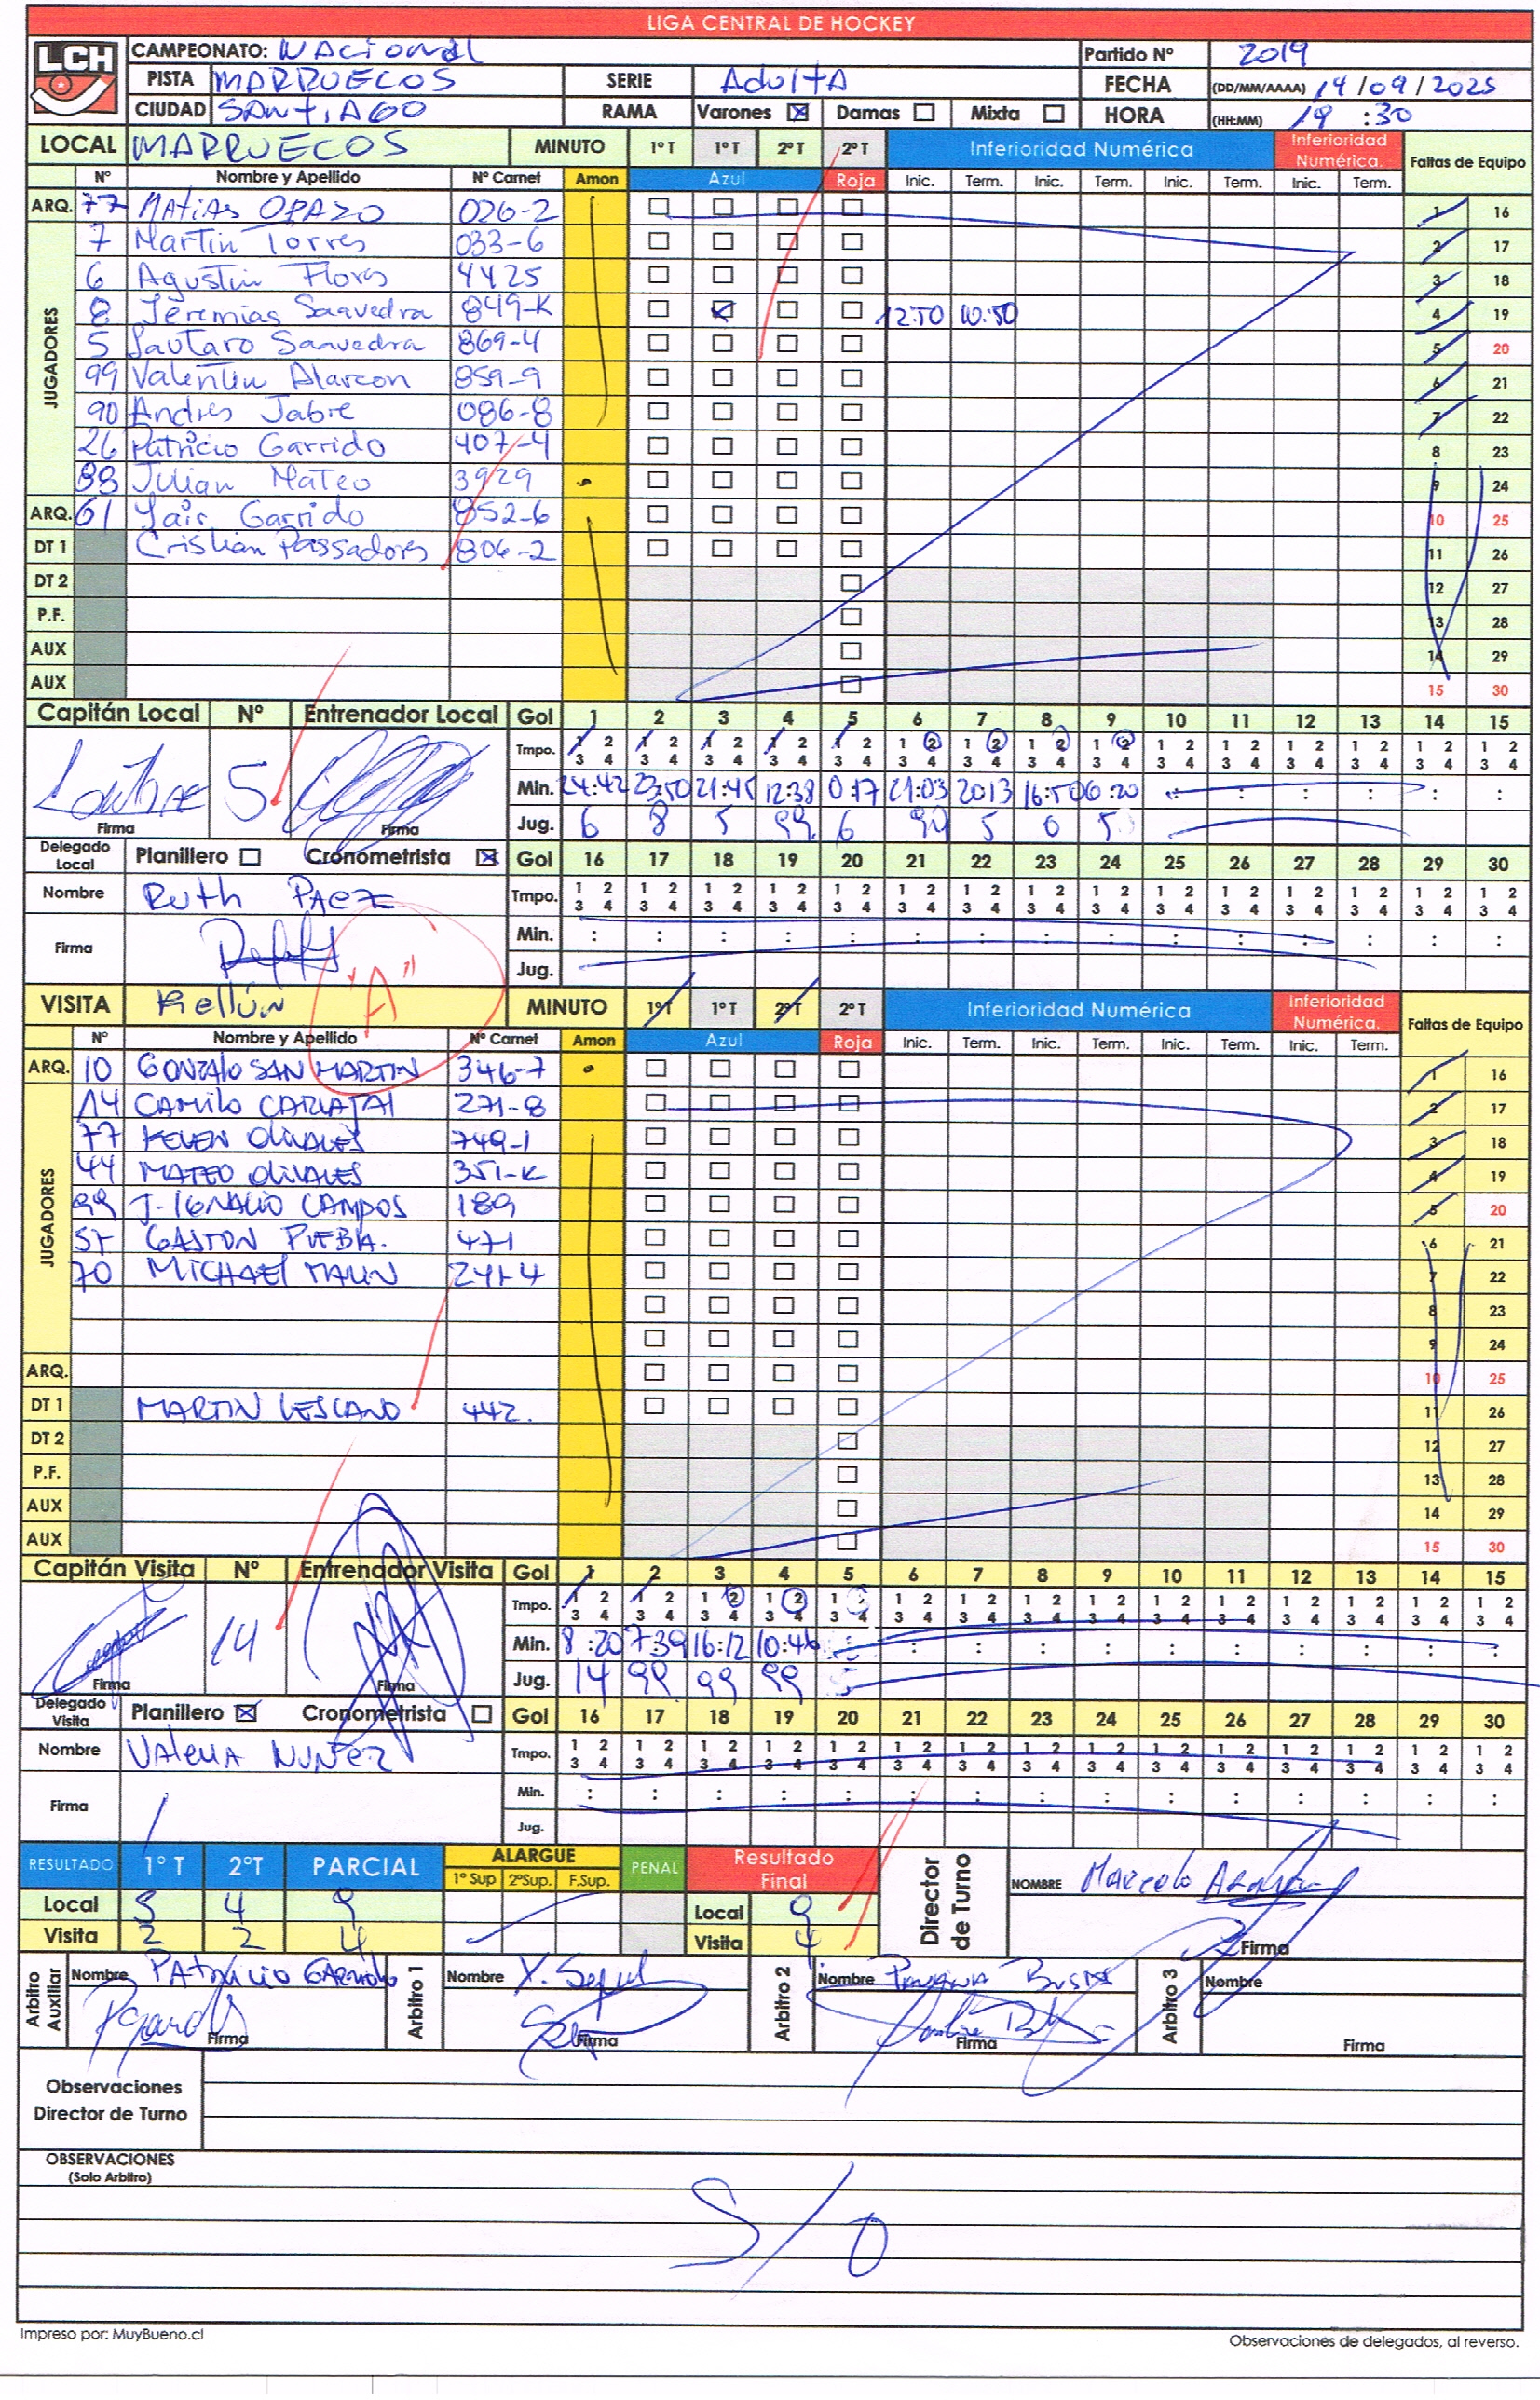 LIGA CENTRAL DE HOCKEY
LCH
CAMPEONATO: NACIONAL Partido Nº 2019
PISTA MARRUECOS SERIE AdultA FECHA (DD/MM/AAAA) 14/09/2025
CIUDAD SANTIAGO RAMA Varones ☒ Damas ☐ Mixta ☐ HORA (HH:MM) 19:30
LOCAL MARRUECOS MINUTO 1º T 1º T 2º T 2º T Inferioridad Numérica Inferioridad Numérica. Faltas de Equipo
Nº Nombre y Apellido Nº Carnet Amon Azul Roja Inic. Term. Inic. Term. Inic. Term. Inic. Term.
ARQ. 77 MATIAS OPAZO 026-2 1 16
JUGADORES
7 Martin Torres 033-6 2 17
6 Agustin Flores 4425 3 18
8 Jeremias Saavedra 849-K 12:50 10:50 4 19
5 Lautaro Saavedra 869-4 5 20
99 Valentin Alarcon 859-9 6 21
90 Andres Jabre 086-8 7 22
26 Patricio Garrido 407-4 8 23
88 Julian Mateo 3929 9 24
ARQ. 61 Yair Garrido 852-6 10 25
DT 1 Cristian Passadores 806-2 11 26
DT 2 12 27
P.F. 13 28
AUX 14 29
AUX 15 30
Capitán Local Nº Entrenador Local Gol 1 2 3 4 5 6 7 8 9 10 11 12 13 14 15
Tmpo. 1 2 1 2 1 2 1 2 1 2 1 2 1 2 1 2 1 2 1 2 1 2 1 2 1 2 1 2 1 2
3 4 3 4 3 4 3 4 3 4 3 4 3 4 3 4 3 4 3 4 3 4 3 4 3 4 3 4 3 4
5 Min. 24:42 23:50 21:45 12:38 0:17 21:03 2013 16:50 06:20 : : : : : :
Firma Firma Jug. 6 8 5 99 6 90 5 5
Delegado Local Planillero ☐ Cronometrista ☒ Gol 16 17 18 19 20 21 22 23 24 25 26 27 28 29 30
Nombre Ruth PAEZ Tmpo. 1 2 1 2 1 2 1 2 1 2 1 2 1 2 1 2 1 2 1 2 1 2 1 2 1 2 1 2 1 2
3 4 3 4 3 4 3 4 3 4 3 4 3 4 3 4 3 4 3 4 3 4 3 4 3 4 3 4 3 4
Firma Min. : : : : : : : : : : : : : : :
"A" Jug.
VISITA Kellún MINUTO 1º T 1º T 2º T 2º T Inferioridad Numérica Inferioridad Numérica. Faltas de Equipo
Nº Nombre y Apellido Nº Carnet Amon Azul Roja Inic. Term. Inic. Term. Inic. Term. Inic. Term.
ARQ. 10 GONZALO SAN MARTIN 346-7 1 16
JUGADORES
14 CAMILO CARVAJAL 271-8 2 17
77 OLIVARES 749-1 3 18
44 MATEO OLIVARES 351-K 4 19
99 J. IGNACIO CAMPOS 189 5 20
57 GASTON PUEBLA. 471 6 21
70 MICHAEL 241-4 7 22
8 23
9 24
ARQ. 10 25
DT 1 MARTIN LESCANO 442. 11 26
DT 2 12 27
P.F. 13 28
AUX 14 29
AUX 15 30
Capitán Visita Nº Entrenador Visita Gol 1 2 3 4 5 6 7 8 9 10 11 12 13 14 15
Tmpo. 1 2 1 2 1 2 1 2 1 2 1 2 1 2 1 2 1 2 1 2 1 2 1 2 1 2 1 2 1 2
3 4 3 4 3 4 3 4 3 4 3 4 3 4 3 4 3 4 3 4 3 4 3 4 3 4 3 4 3 4
14 Min. 8:20 7:39 16:12 10:46 : : : : : : : : : : :
Firma Firma Jug. 14 99 99 99
Delegado Visita Planillero ☒ Cronometrista ☐ Gol 16 17 18 19 20 21 22 23 24 25 26 27 28 29 30
Nombre VALERIA NUÑEZ Tmpo. 1 2 1 2 1 2 1 2 1 2 1 2 1 2 1 2 1 2 1 2 1 2 1 2 1 2 1 2 1 2
3 4 3 4 3 4 3 4 3 4 3 4 3 4 3 4 3 4 3 4 3 4 3 4 3 4 3 4 3 4
Firma Min. : : : : : : : : : : : : : : :
Jug.
RESULTADO 1º T 2ºT PARCIAL ALARGUE 1º Sup 2ºSup. F.Sup. PENAL Resultado Final Director de Turno NOMBRE Marcelo
Local 5 4 9 Local 9
Visita 2 2 4 Visita 4 Firma
Arbitro Auxiliar Nombre PATRICIO GARRIDO Arbitro 1 Nombre Y. Sepul Arbitro 2 Nombre Arbitro 3 Nombre
Firma Firma Firma Firma
Observaciones
Director de Turno
OBSERVACIONES
(Solo Arbitro)
S/O
Impreso por: MuyBueno.cl Observaciones de delegados, al reverso.